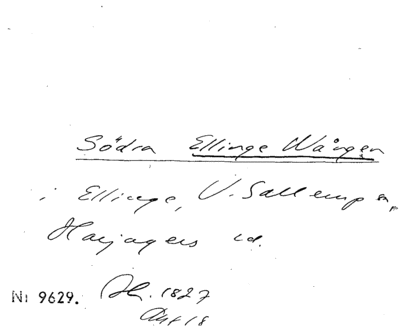 Södra Ellinge Wången
i Ellinge, V. Sallerup sn,
Harjagers hd.
Nr 9629. 1827
Akt 18